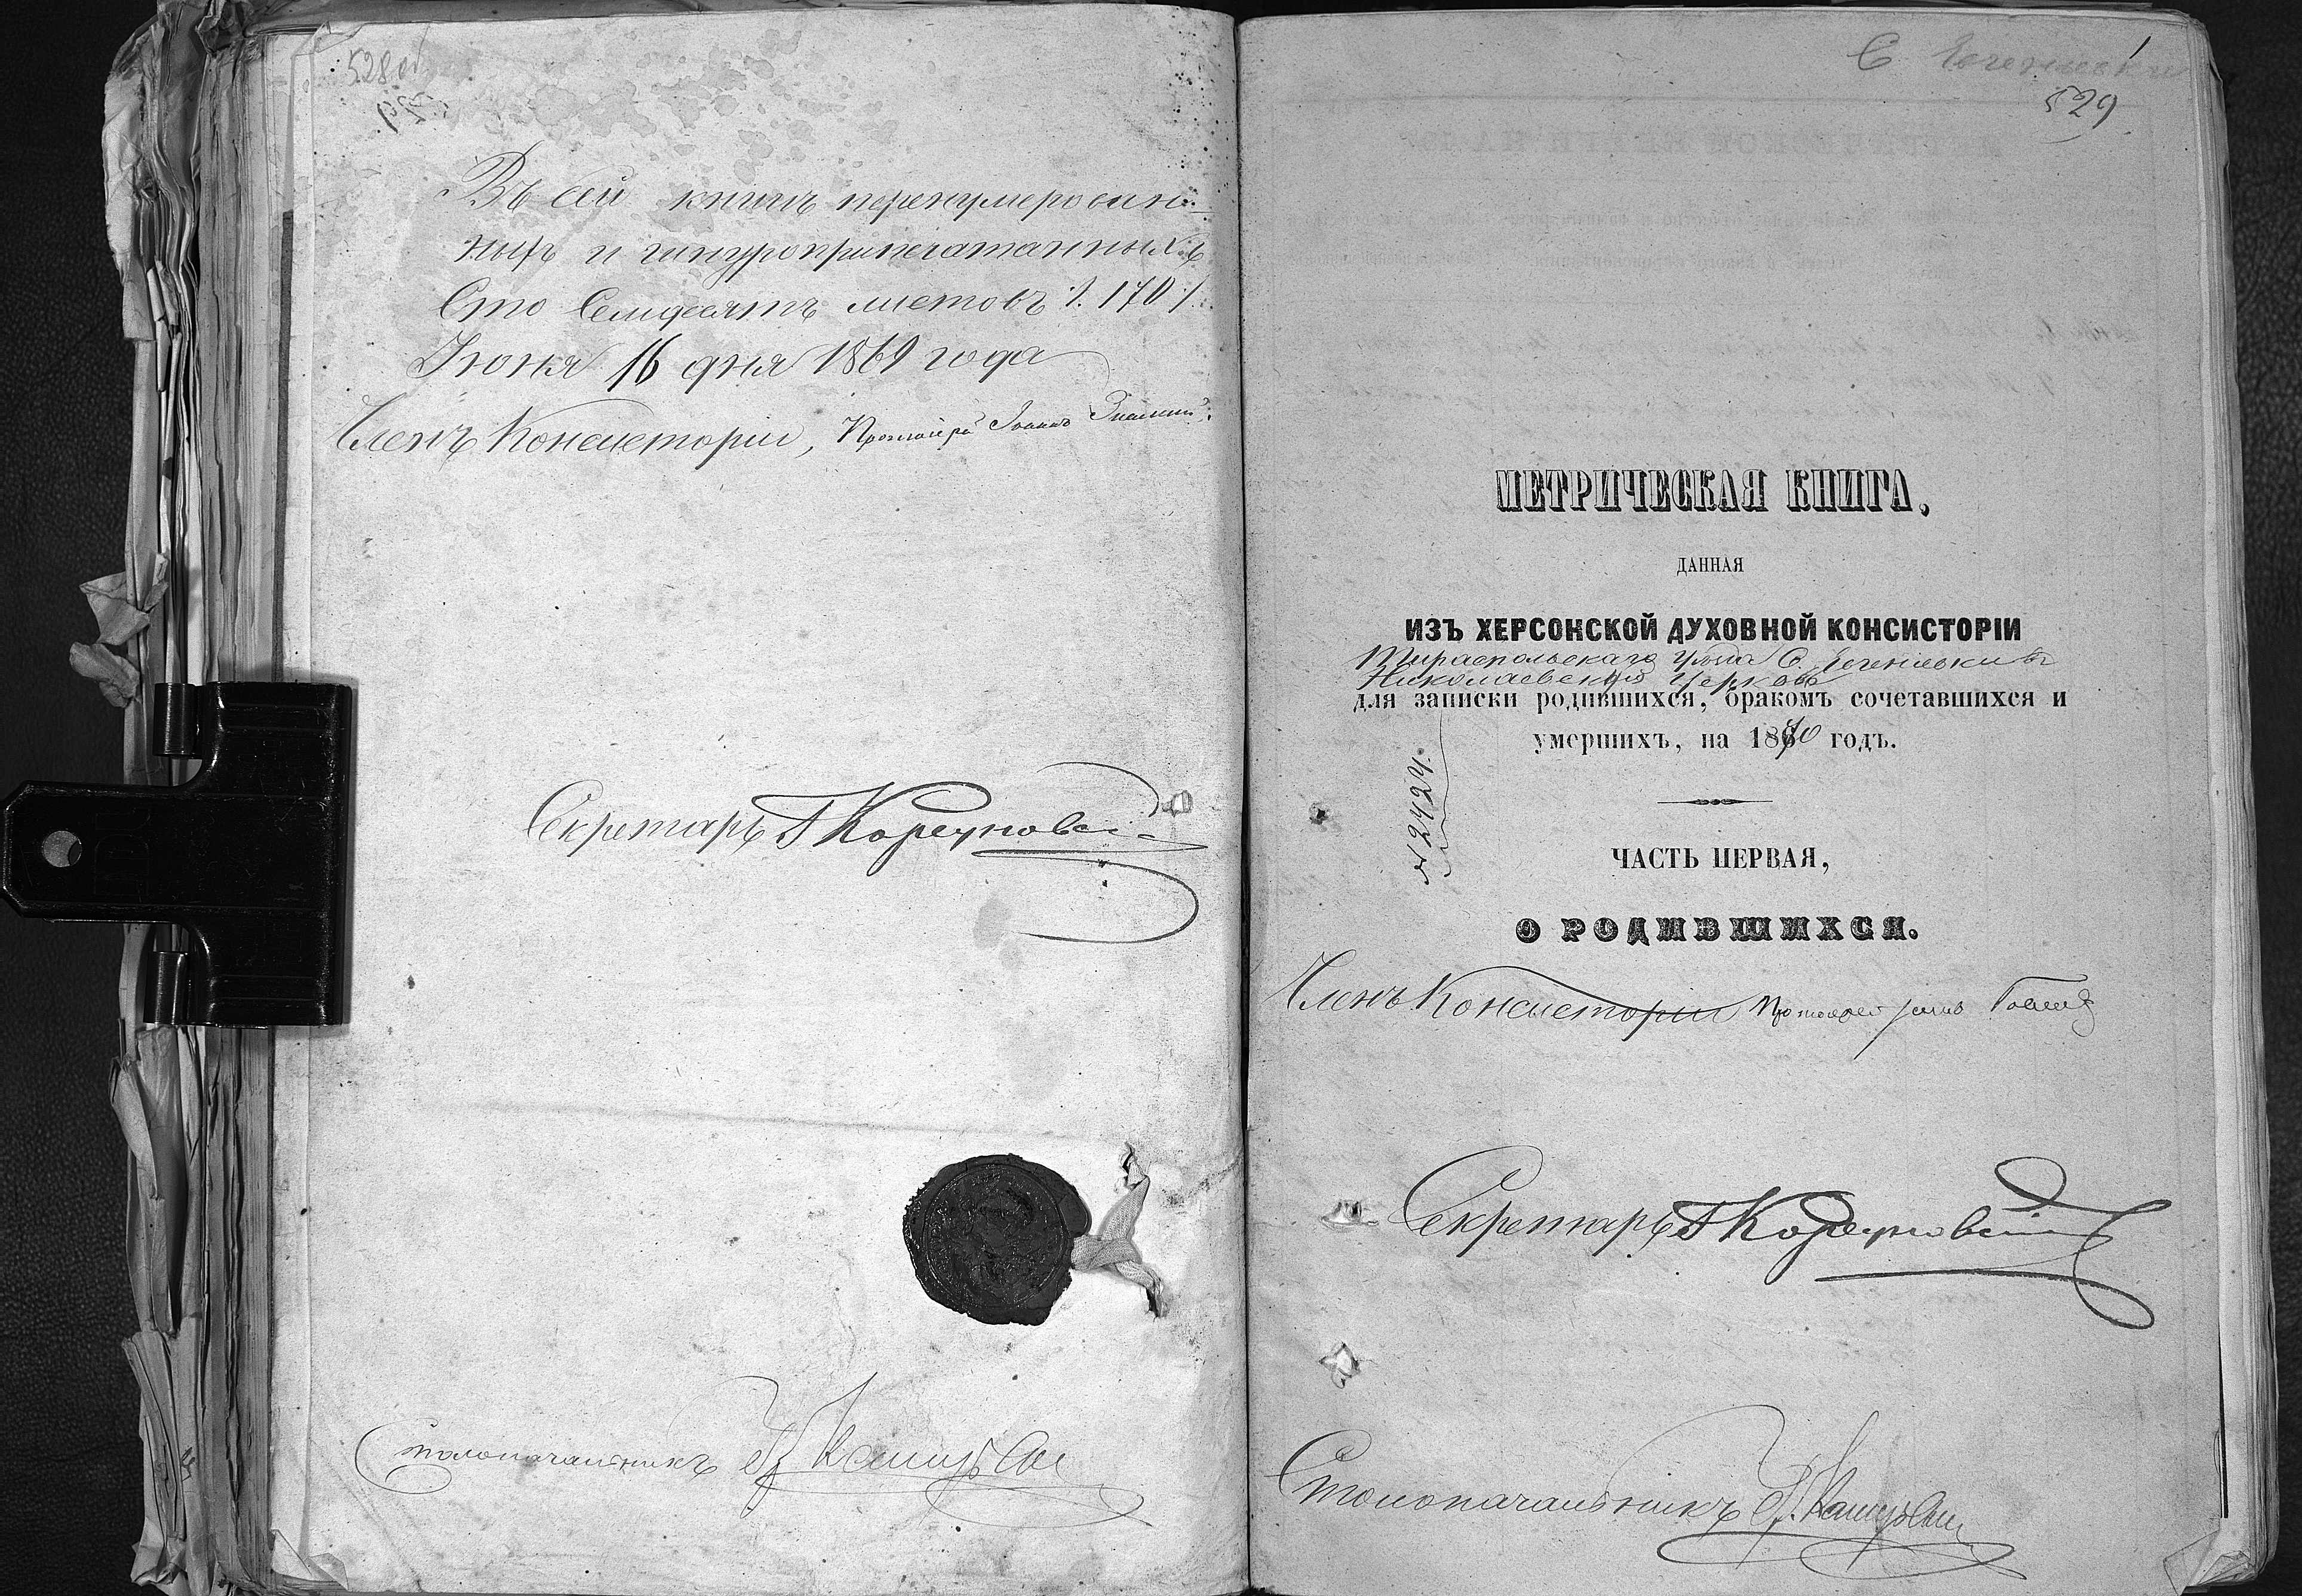 528об
Въ сей книгѣ перенумерован-
ныхъ и шнуроприпечатанныхъ
Сто Семидесятъ листовъ ./. 170 ./.
Іюня 16 дня 1869 года
Членъ Консисторіи, Протоіерей Іоаннъ
Секретарь
Столоначальникъ
1
С Евгеньевки
529
МЕТРИЧЕСКАЯ КНИГА,
ДАННАЯ
ИЗЪ ХЕРСОНСКОЙ ДУХОВНОЙ КОНСИСТОРІИ
Тираспольскаго уѣзда С. Евгеньевки въ
Николаевскую церковь
для записки родившихся, бракомъ сочетавшихся и
умершихъ, на 1870 годъ.
№ 2424.
ЧАСТЬ ПЕРВАЯ,
О РОДИВШИХСЯ.
Членъ Консисторіи Протоіерей
Секретарь
Столоначальникъ